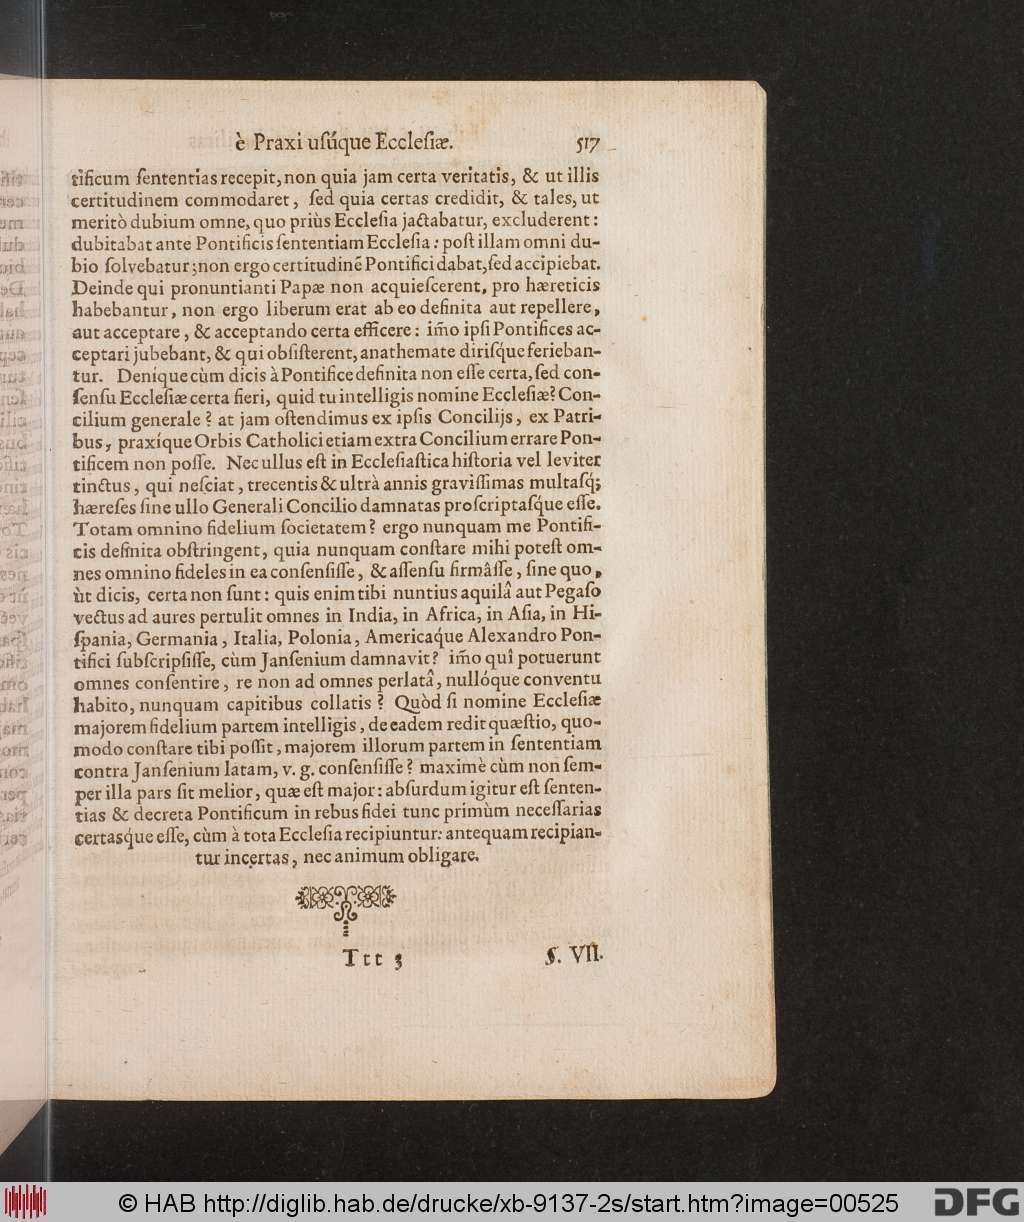 è Praxi uſúque Eccleſiæ. 517
tificum ſententias recepit, non quia jam certa veritatis, & ut illis
certitudinem commodaret, ſed quia certas credidit, & tales, ut
meritò dubium omne, quo priùs Eccleſia jactabatur, excluderent:
dubitabat ante Pontificis ſententiam Eccleſia: poſt illam omni du-
bio ſolvebatur; non ergo certitudinẽ Pontifici dabat, ſed accipiebat.
Deinde qui pronuntianti Papæ non acquieſcerent, pro hæreticis
habebantur, non ergo liberum erat ab eo definita aut repellere,
aut acceptare, & acceptando certa efficere: im̃o ipſi Pontifices ac-
ceptari jubebant, & qui obſiſterent, anathemate diriſq́ue ferieban-
tur. Deníque cùm dicis à Pontifice definita non eſſe certa, ſed con-
ſenſu Eccleſiæ certa fieri, quid tu intelligis nomine Eccleſiæ? Con-
cilium generale? at jam oſtendimus ex ipſis Concilijs, ex Patri-
bus, praxíque Orbis Catholici etiam extra Concilium errare Pon-
tificem non poſſe. Nec ullus eſt in Eccleſiaſtica hiſtoria vel leviter
tinctus, qui neſciat, trecentis & ultrà annis graviſſimas multaſq́;
hæreſes ſine ullo Generali Concilio damnatas proſcriptaſq́ue eſſe.
Totam omnino fidelium ſocietatem? ergo nunquam me Pontifi-
cis definita obſtringent, quia nunquam conſtare mihi poteſt om-
nes omnino fideles in ea conſenſiſſe, & aſſenſu firmâſſe, ſine quo,
ùt dicis, certa non ſunt: quis enim tibi nuntius aquilâ aut Pegaſo
vectus ad aures pertulit omnes in India, in Africa, in Aſia, in Hi-
ſpania, Germania, Italia, Polonia, Americaq́ue Alexandro Pon-
tifici ſubſcripſiſſe, cùm Janſenium damnavit? im̃o quî potuerunt
omnes conſentire, re non ad omnes perlatâ, nullóque conventu
habito, nunquam capitibus collatis? Quòd ſi nomine Eccleſiæ
majorem fidelium partem intelligis, de eadem redit quæſtio, quo-
modo conſtare tibi poſſit, majorem illorum partem in ſententiam
contra Janſenium latam, v. g. conſenſiſſe? maximè cùm non ſem-
per illa pars ſit melior, quæ eſt major: abſurdum igitur eſt ſenten-
tias & decreta Pontificum in rebus fidei tunc primùm neceſſarias
certasq́ue eſſe, cùm à tota Eccleſia recipiuntur: antequam recipian-
tur incertas, nec animum obligare.
Ttt 3 §. VII.
© HAB http://diglib.hab.de/drucke/xb-9137-2s/start.htm?image=00525 DFG